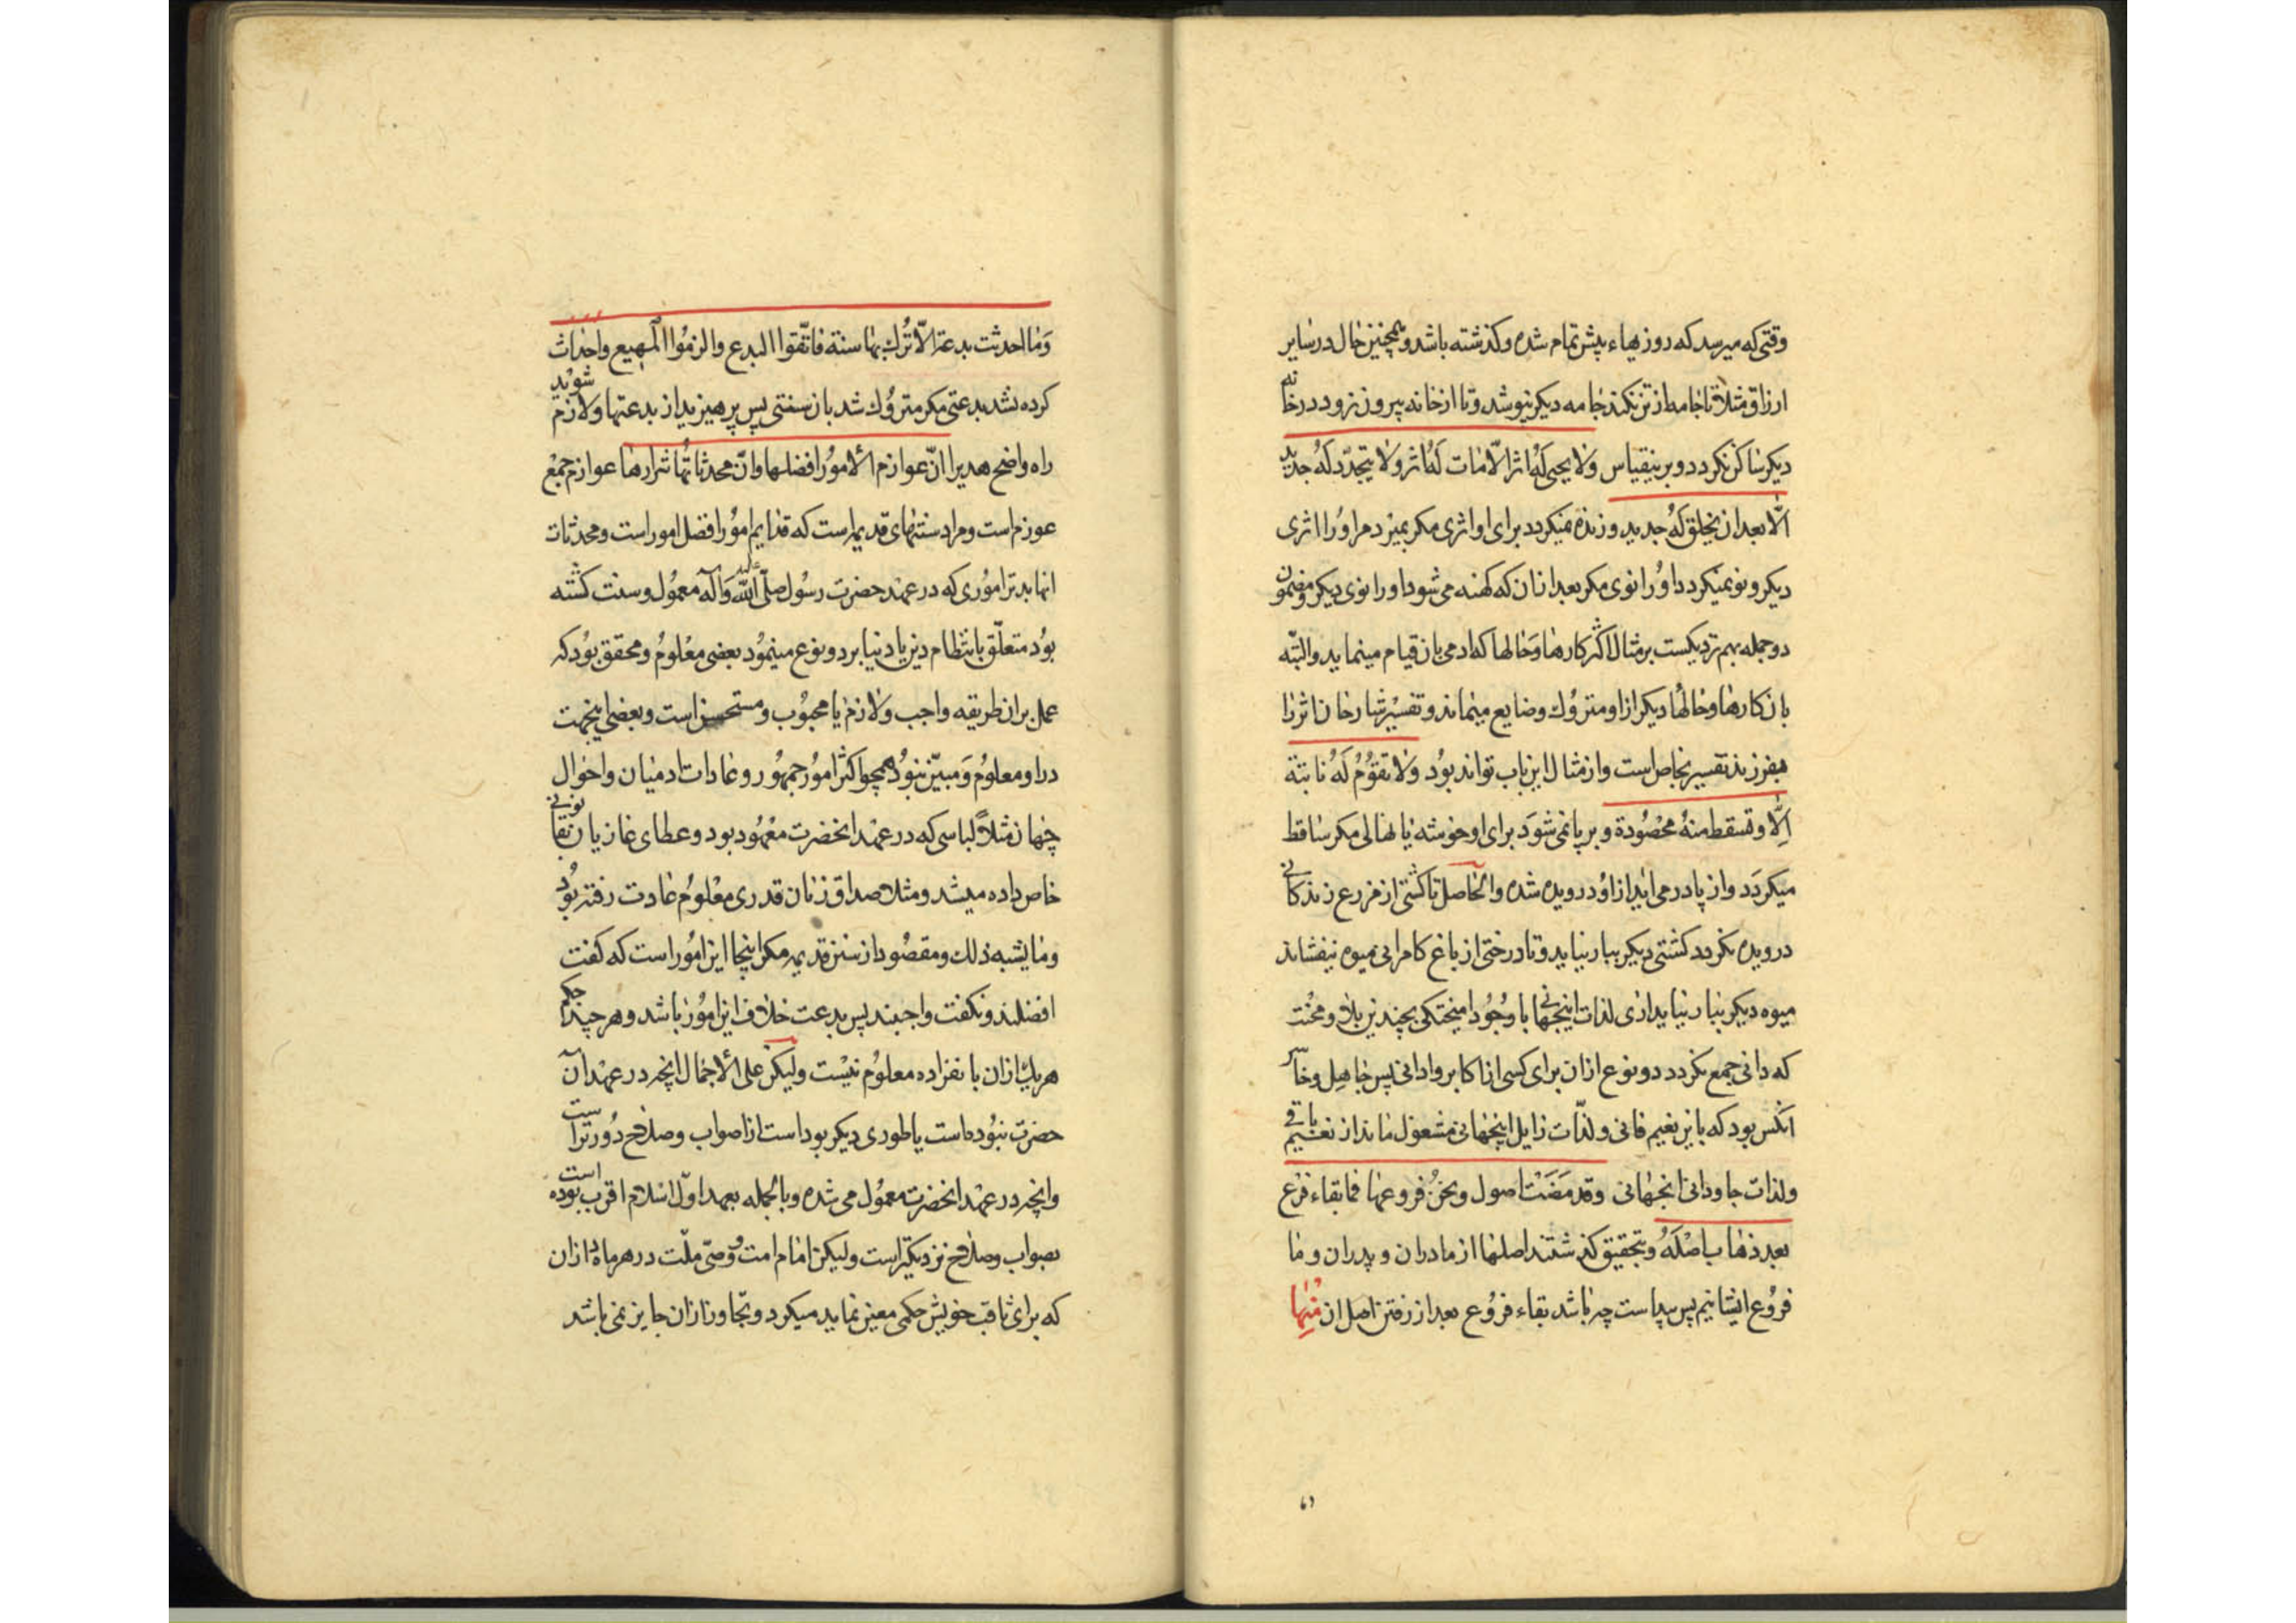 وقتی که میرسد که روزیهاء پیش تمام شده و کذشته باشد و همچنین حال در سایر
ارزاق مثلا تا جامه از تن نکند جامه دیکر نپوشد و تا از خانه بیرون نرود در خانه
دیکر ساکن نکردد و برینقیاس وَلا یحیی لَهُ اثر الّا مات لَهُ اثر ولا یتجدّد لَهُ جدید
الّا بعد ان یخلق لَهُ جدید و زنده نمیکردد برای او اثری مکر بمیرد مر اوُرا اثری
دیکر و نو نمیکردد اوُرا نوی مکر بعد از ان که کهنه می شود اورا نوی دیکر و مضمون
دو جمله بهم نزدیکست بر مثال اکثر کارها وَحالها که ادمی بان قیام مینماید والبتّه
بان کارها و حالهُا دیکر از او متروُک و ضایع میماند و تفسیر شارحان اثر را
بفرزند تفسیر بخاص است و از مثال این باب تواند بوُد وَلا تقوُمُ لَهُ نابتة
اِلّا وتسقط منهُ محصُودة و برپا نمی شوَد برای او خوشه یا نهالی مکر ساقط
میکردَد و از پا در می اید از اوُ درویده شده والحاصل تا کشتی از مزرع زندکانی
درویده نکردد کشتی دیکر ببار نیاید و تا درختی از باغ کامرانی میوه نیفشاند
میوه دیکر ببار نیاید اری لذات اینجهانی با وجُوُد امیختکی بچندین بلا و محُنت
که دانی جمع نکردد دو نوع ازان برای کسی از اکابر و ادانی پس جاهِل و خاسر
انکس بود که باین نعیم فانی و لذّات زایل اینجهانی مشغوُل ماند از نعیم باقی
ولذات جاودانی انجهانی وقد مَضَتْ اصول ونحنُ فروعها فما بقاء فرْع
بعد ذهاب اصْلَهُ و بتحقیق کذشتند اصلها از مادران و پدران و ما
فروُع ایشانیم پس پیداست چه باشد بقاء فروُع بعد از رفتن اصل ان مْنِهٰا
وَمٰا احدثت بدعة الّا تُرك بها سنة فاتّقوا البدع والزموُا المهیع واحداث
کرده نشد بدعتی مکر متروُک شد بان سنتی پس پرهیزید از بدعتها و لازم شوید
راه واضح هدیرا انّ عوازم الأموُر افضلها وانّ محدثاتُها شرارها عوازم جمع
عوزم است و مراد سنتهای قدیمه است که قدایم اموُر افضل امور است و محدثات
انها بدتر اموُری که در عهد حضرت رسوُل صلّی الله علیه وَآله معموُل و سنت کشته
بوُد متعلّق بانتظام دین یا دنیا بر دو نوع مینموُد بعضی معْلوُمُ و محقق بوُد که
عمل بر ان طریقه واجب و لازم یا محبوُب و مستحسن است و بعضی اینجهت
در او معلوُمُ وَ مبیّن نبوُد همچو اکثر اموُر جمهوُر و عادات ادمیان و احوال
جهان مثلاً لباسی که در عهد انحضرت معْهوُد بود و عطای غازیان بقانونی
خاص داده میشد و مثلا صداق زنان قدری معْلوُم عادت رفته بوُد
وما یشبه ذلك و مقصوُد از سنن قدیمه مکر اینجا این اموُر است که کفت
افضلند و نکفت واجبند پس بدعت خلاف این اموُر باشد و هر چند حکم
هر یك ازان بانفراده معلوُم نیْست ولیکن علی الأجمال انچه در عهد آن
حضرت نبوُده است یا طوری دیکر بود است از اصواب و صلاح دوُرتر است
وانچه در عهد انحضرت معموُل می شده و بالجُمله بعهد اوّل اسْلام اقرب بوده است
بصواب و صلاح نزدیکتر است ولیکن امام امت وُ وصیّ ملّت در هر مادّه ازان
که برای ثاقب خویش حکمی معین نماید میکرد و تجاوز ازان جایز نمی باشد